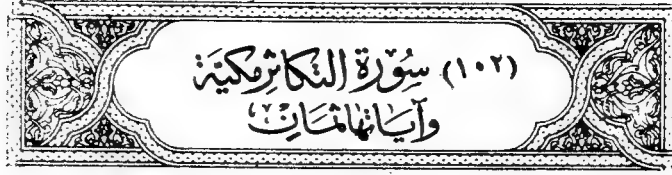 (١٠٢) سُورَةُ التَّكَاثُرِ مَكِيَّة
وَآيَاتهَا ثَمَانِ